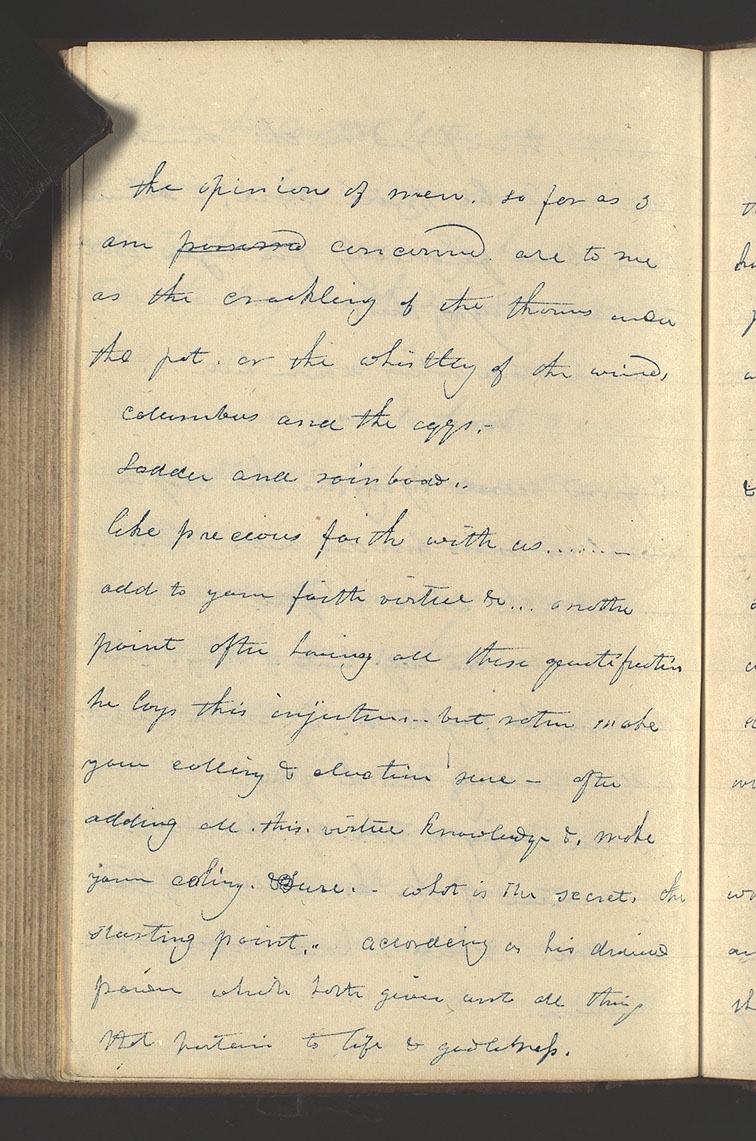 the opinions of men. so far as I
am possessed concerned. are to me
as the crackling of the thorns under
the pot. or the whistling of the wind,
columbus and the eggs.-
Ladder and rainbow..
like precious faith with us.......
add to your faith virtue &c... another
point after having all these qualifications
he lays this injunction.. but rather make
your calling & election sure - after
adding all. this. virtue knowledge &. make
your calling. & sure. - what is the secret. the
starting point.. according as his divine
power which hath given unto all things
that pertain to life & godliness.